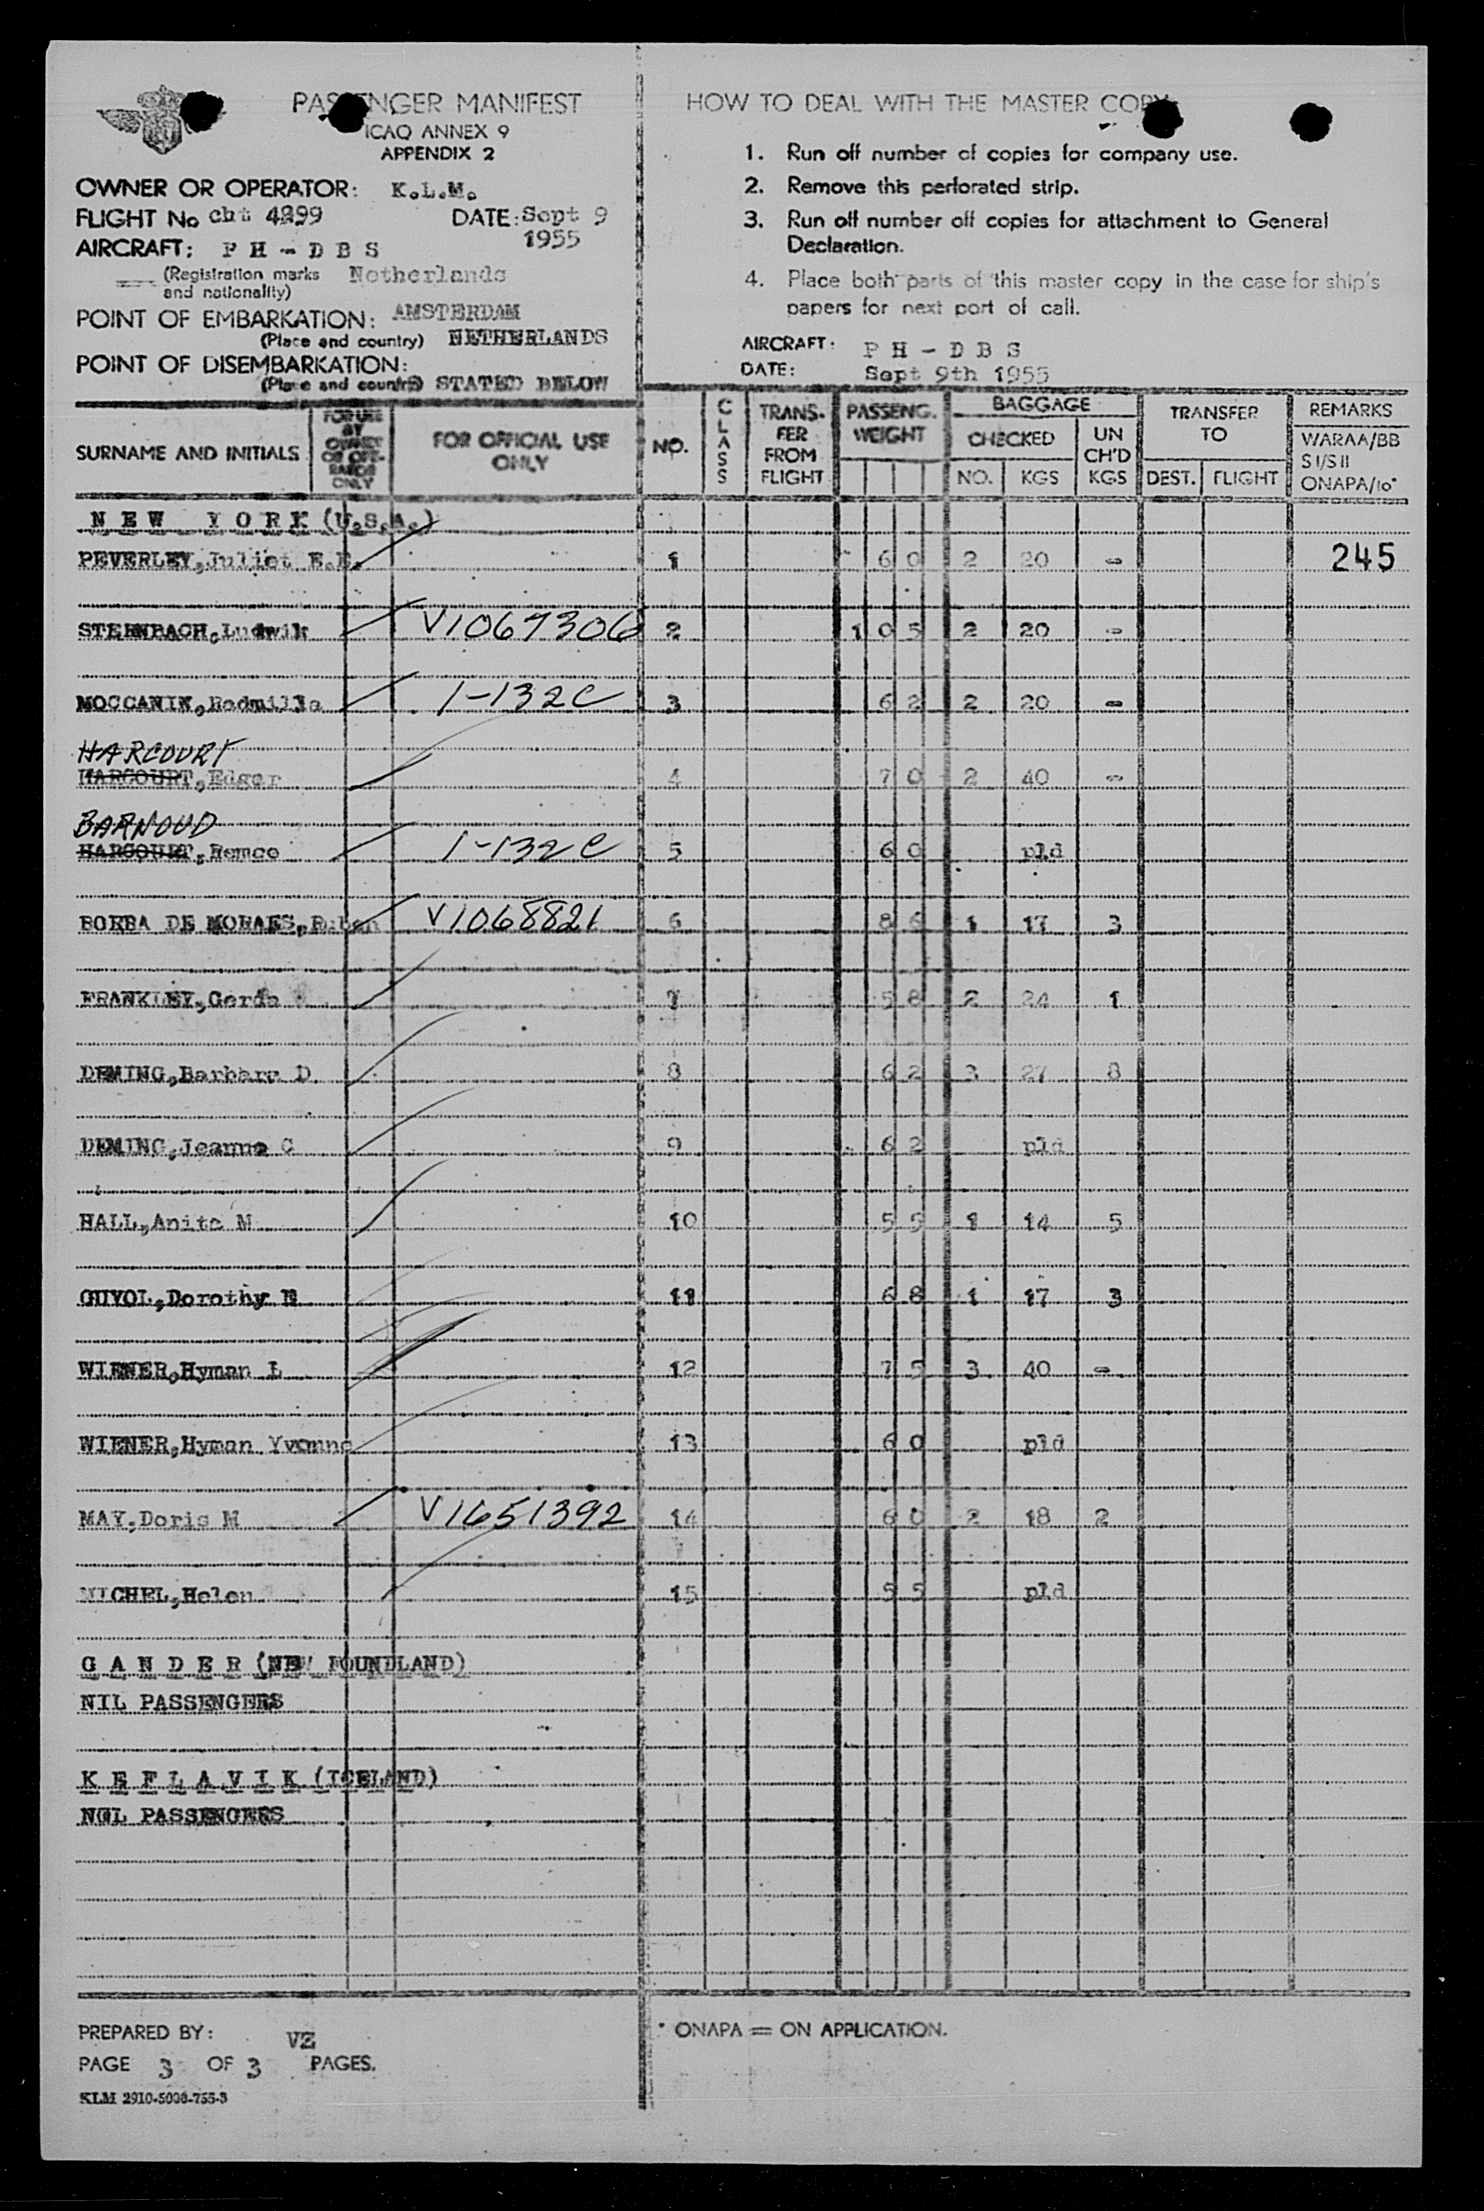 PASSENGER MANIFEST
ICAO ANNEX 9
APPENDIX 2
OWNER OR OPERATOR: K.L.M.
FLIGHT No cht 4299 DATE: Sept 9
1955
AIRCRAFT: P H - D B S
(Registration marks Netherlands
and nationality)
POINT OF EMBARKATION: AMSTERDAM
(Place and country) NETHERLANDS
POINT OF DISEMBARKATION:
(Place and country) STATED BELOW
HOW TO DEAL WITH THE MASTER COPY
1. Run off number of copies for company use.
2. Remove this perforated strip.
3. Run off number off copies for attachment to General
Declaration.
4. Place both parts of this master copy in the case for ship's
papers for next port of call.
AIRCRAFT: P H - D B S
DATE: Sept 9th 1955
SURNAME AND INITIALS FOR USE BY OWNER OR OPERATOR ONLY FOR OFFICIAL USE ONLY NO. CLASS TRANSFER FROM FLIGHT PASSENG. WEIGHT BAGGAGE CHECKED NO. KGS UN CH'D KGS TRANSFER TO DEST. FLIGHT REMARKS WARAA/BB SI/SII ONAPA/10*
N E W Y O R K (U.S.A.)
PEVERLEY, Juliet E.E. 1 60 2 20 - 245
STERNBACH, Ludwik V1067306 2 105 2 20 -
MOCCANIN, Radmilla 1-132C 3 62 2 20 -
HARCOURT
HARCOURT, Edgar 4 70 2 40 -
BARNOUD
HARCOURT, Remco 1-132C 5 60 pld
BORBA DE MORAES, Ruben V1068821 6 86 1 17 3
FRANKLEY, Gerda 7 58 2 24 1
DEMING, Barbara D. 8 62 3 27 8
DEMING, Jeanne C 9 62 pld
HALL, Anita M 10 55 1 14 5
GUYOL, Dorothy E 11 68 1 17 3
WIENER, Hyman L 12 75 3 40 -
WIENER, Hyman Yvonne 13 60 pld
MAY, Doris M V1651392 14 60 2 18 2
MICHEL, Helen 15 55 pld
G A N D E R (NEW FOUNDLAND)
NIL PASSENGERS
K E F L A V I K (ICELAND)
NOL PASSENGERS
PREPARED BY: VZ
PAGE 3 OF 3 PAGES.
KLM 2910-5000-755-3
* ONAPA = ON APPLICATION.